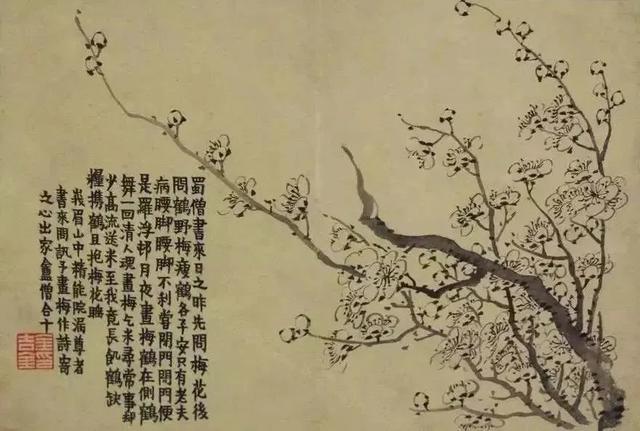 蜀僧書來日之昨先問梅花後
問鶴野梅瘦鶴各平安只有老夫
病腰脚腰脚不利嘗閉門閉門便
是羅浮邨月夜畫梅鶴在側鶴
舞一回清人魂畫梅乞米尋常事却
少高流送米至我竟長飢鶴缺
糧携鶴且抱梅花睡
峩眉山中精能院漏尊者
書來問訊予畫梅作詩寄
之心出家盦僧合十
金印吉金